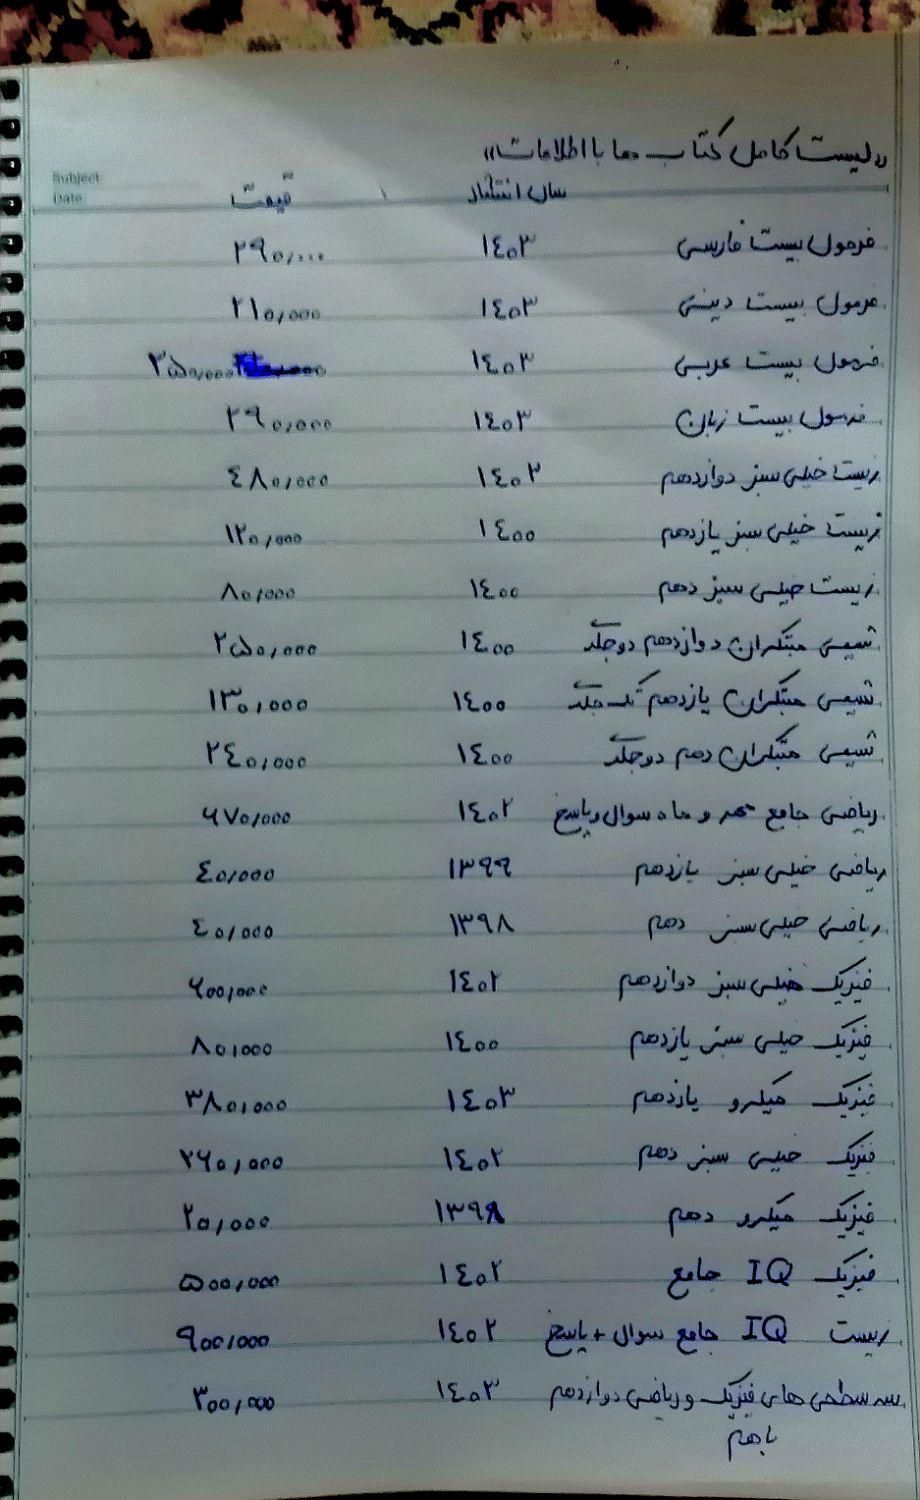 «لیست کامل کتاب ها با اطلاعات»
Subject:
Date:
سال انتشار قیمت
فرمول بیست فارسی ۱۴۰۳ ۲۹۰,۰۰۰
فرمول بیست دینی ۱۴۰۳ ۲۱۰,۰۰۰
فرمول بیست عربی ۱۴۰۳ ۲۵۰,۰۰۰
فرمول بیست زبان ۱۴۰۳ ۲۹۰,۰۰۰
زیست خیلی سبز دوازدهم ۱۴۰۲ ۴۸۰,۰۰۰
زیست خیلی سبز یازدهم ۱۴۰۰ ۱۲۰,۰۰۰
زیست خیلی سبز دهم ۱۴۰۰ ۸۰,۰۰۰
شیمی مبتکران دوازدهم دوجلد ۱۴۰۰ ۲۵۰,۰۰۰
شیمی مبتکران یازدهم تک جلد ۱۴۰۰ ۱۳۰,۰۰۰
شیمی مبتکران دهم دوجلد ۱۴۰۰ ۲۴۰,۰۰۰
ریاضی جامع مهر و ماه سوال و پاسخ ۱۴۰۲ ۶۷۰,۰۰۰
ریاضی خیلی سبز یازدهم ۱۳۹۹ ۴۰,۰۰۰
ریاضی خیلی سبز دهم ۱۳۹۸ ۴۰,۰۰۰
فیزیک خیلی سبز دوازدهم ۱۴۰۲ ۶۰۰,۰۰۰
فیزیک خیلی سبز یازدهم ۱۴۰۰ ۸۰,۰۰۰
فیزیک میکرو یازدهم ۱۴۰۳ ۳۸۰,۰۰۰
فیزیک خیلی سبز دهم ۱۴۰۲ ۲۶۰,۰۰۰
فیزیک میکرو دهم ۱۳۹۸ ۲۰,۰۰۰
فیزیک IQ جامع ۱۴۰۲ ۵۰۰,۰۰۰
زیست IQ جامع سوال + پاسخ ۱۴۰۲ ۹۰۰,۰۰۰
سه سطحی های فیزیک و ریاضی دوازدهم ۱۴۰۳ ۳۰۰,۰۰۰
باهم